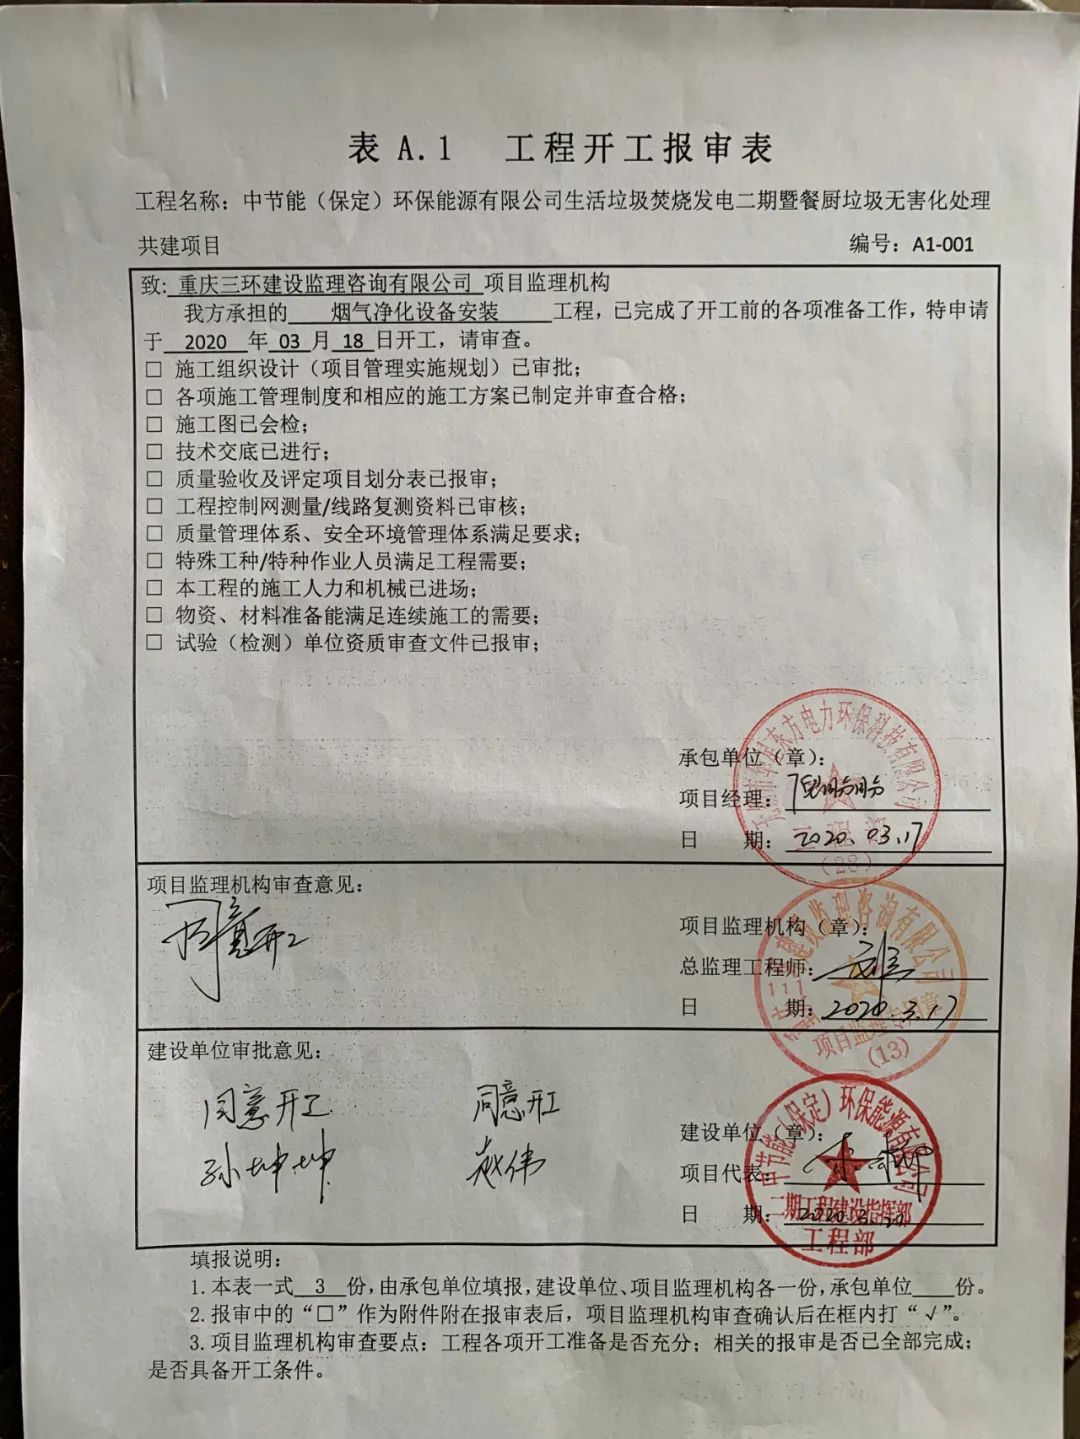 表 A.1 工程开工报审表
工程名称：中节能（保定）环保能源有限公司生活垃圾焚烧发电二期暨餐厨垃圾无害化处理
共建项目
编号：A1-001
致: 重庆三环建设监理咨询有限公司 项目监理机构
我方承担的 烟气净化设备安装 工程，已完成了开工前的各项准备工作，特申请
于 2020 年 03 月 18 日开工，请审查。
□ 施工组织设计（项目管理实施规划）已审批；
□ 各项施工管理制度和相应的施工方案已制定并审查合格；
□ 施工图已会检；
□ 技术交底已进行；
□ 质量验收及评定项目划分表已报审；
□ 工程控制网测量/线路复测资料已审核；
□ 质量管理体系、安全环境管理体系满足要求；
□ 特殊工种/特种作业人员满足工程需要；
□ 本工程的施工人力和机械已进场；
□ 物资、材料准备能满足连续施工的需要；
□ 试验（检测）单位资质审查文件已报审；
东方电力环保科技有限公司
(28)
承包单位（章）：
项目经理：
日 期：2020.03.17
项目监理机构审查意见：
同意开工
建设监理咨询有限公司
项目监理专用章
(13)
项目监理机构（章）：
总监理工程师：
日 期：2020.3.17
建设单位审批意见：
同意开工
孙坤坤
同意开工
赵伟
中节能（保定）环保能源有限公司
二期工程建设指挥部
工程部
建设单位（章）：
项目代表：
日 期：2020.3.20
填报说明：
1.本表一式 3 份，由承包单位填报，建设单位、项目监理机构各一份，承包单位____份。
2.报审中的“□”作为附件附在报审表后，项目监理机构审查确认后在框内打“√”。
3.项目监理机构审查要点：工程各项开工准备是否充分；相关的报审是否已全部完成；
是否具备开工条件。